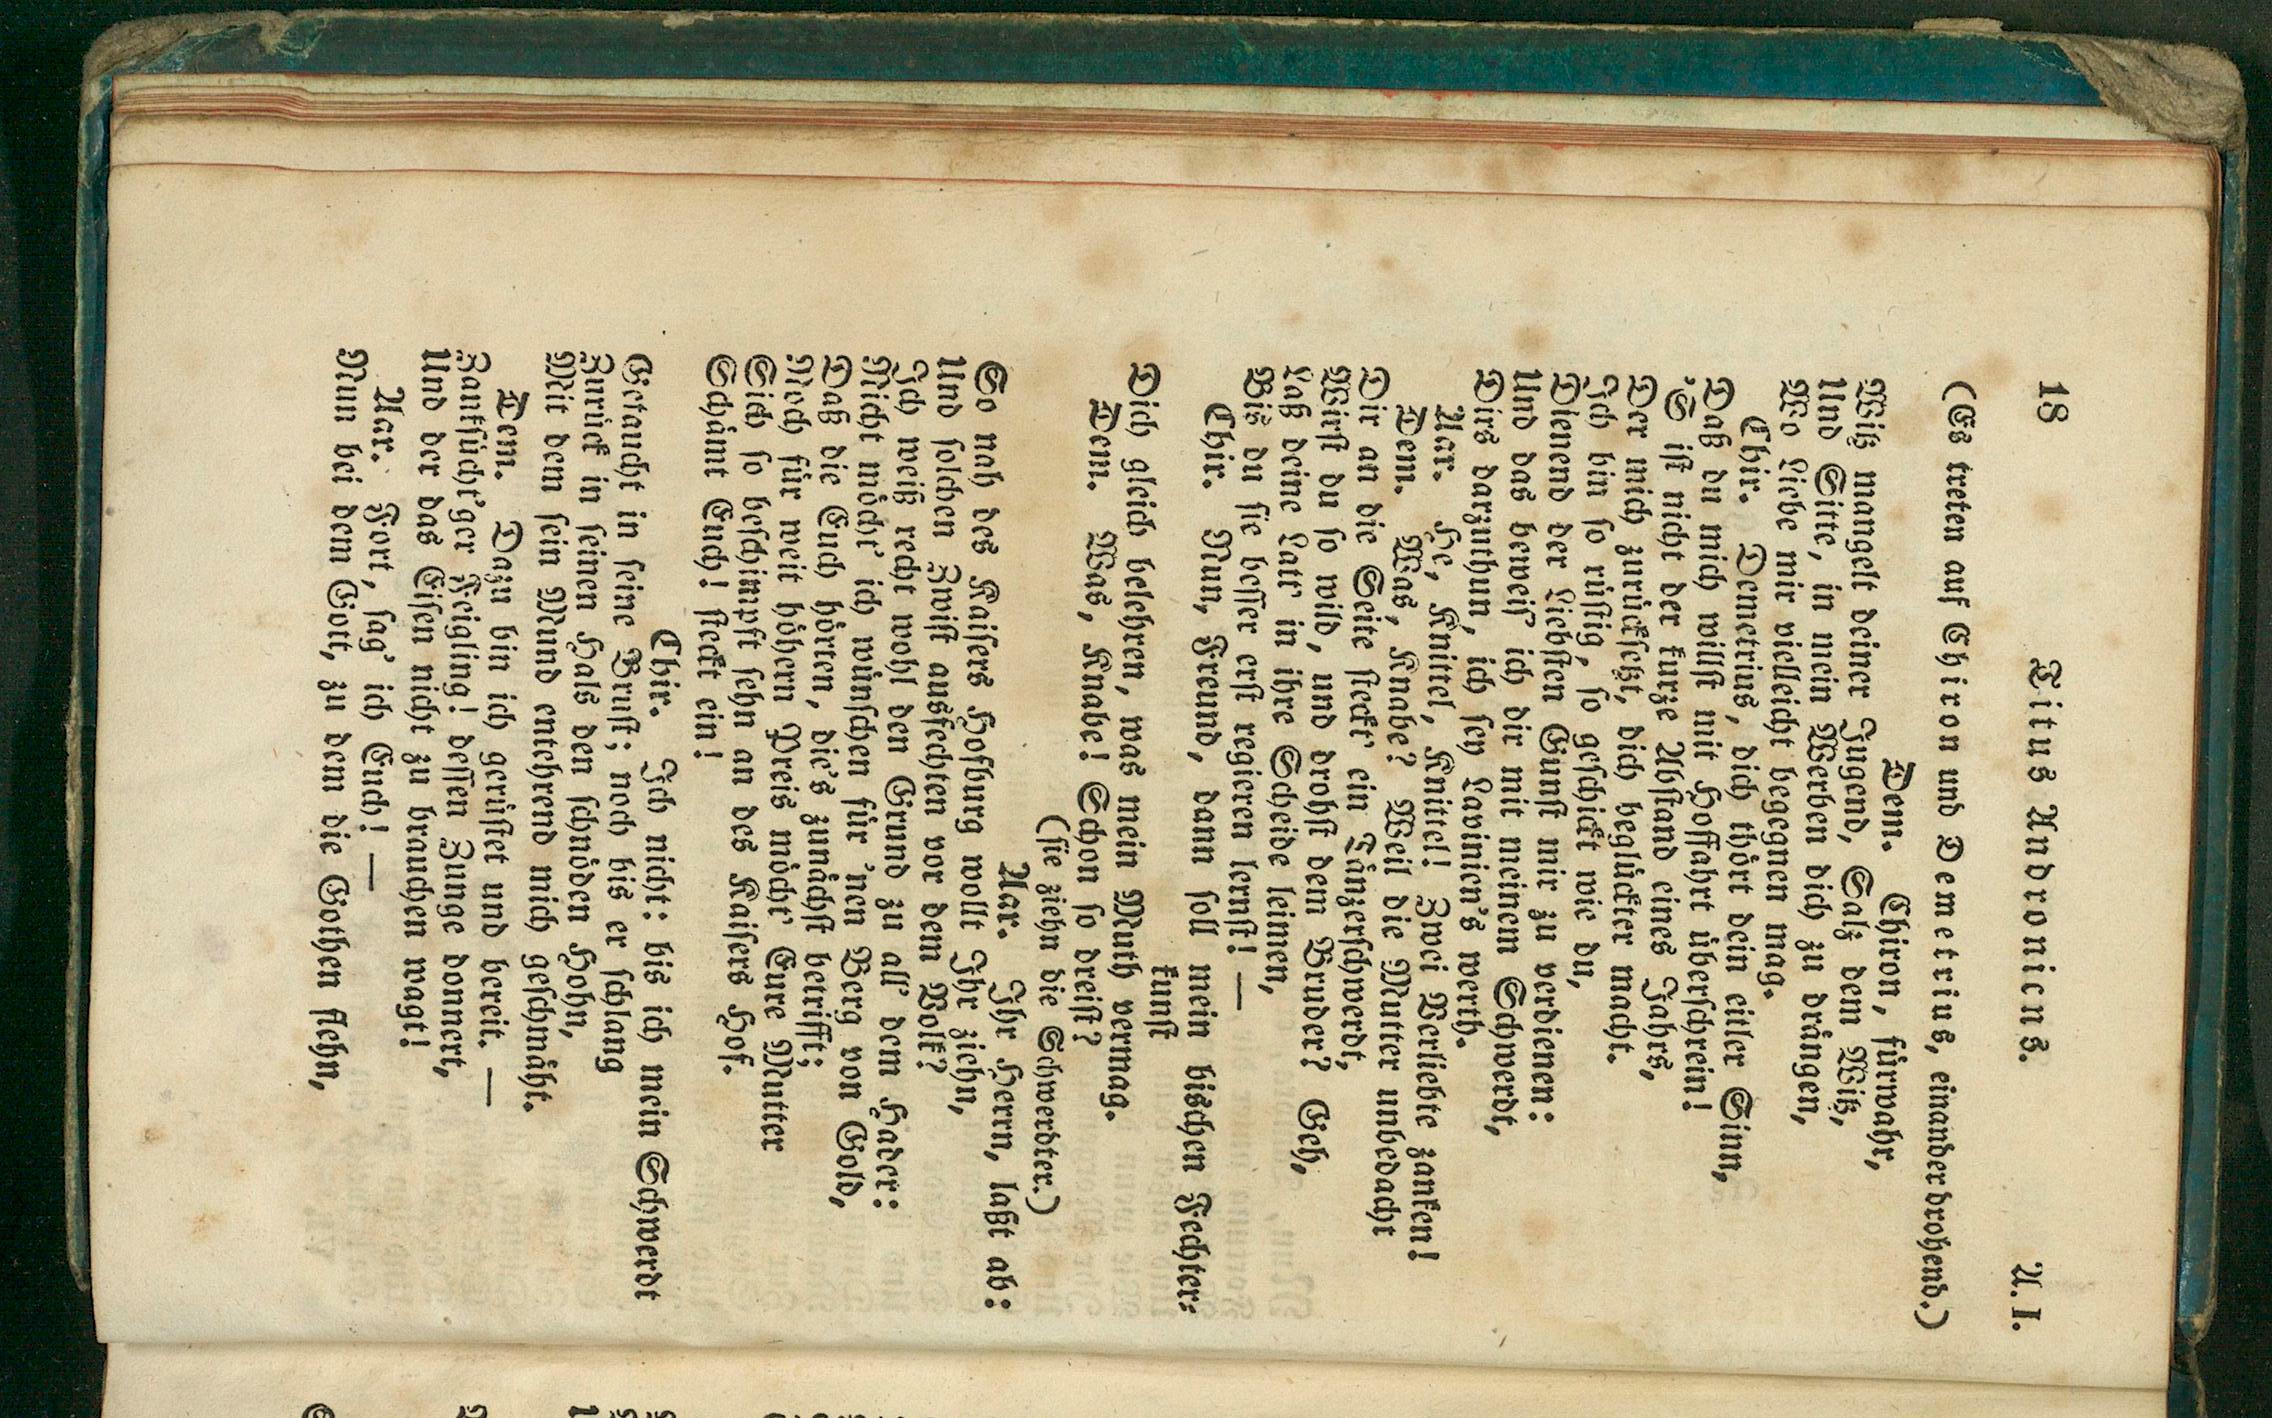 18 Titus Andronicus. A. I.
(Es treten auf Chiron und Demetrius, einander drohend.)
Dem. Chiron, fürwahr,
Witz mangelt deiner Jugend, Salz dem Witz,
Und Sitte, in mein Werben dich zu drängen,
Wo Liebe mir vielleicht begegnen mag.
Chir. Demetrius, dich thört dein eitler Sinn,
Daß du mich willst mit Hoffahrt überschrein!
'S ist nicht der kurze Abstand eines Jahrs,
Der mich zurücksetzt, dich beglückter macht.
Ich bin so rüstig, so geschickt wie du,
Dienend der Liebsten Gunst mir zu verdienen:
Und das beweis' ich dir mit meinem Schwerdt,
Dirs darzuthun, ich sey Lavinien's werth.
Aar. He, Knittel, Knittel! Zwei Verliebte zanken!
Dem. Was, Knabe? Weil die Mutter unbedacht
Dir an die Seite steckt' ein Tänzerschwerdt,
Wirst du so wild, und drohst dem Bruder? Geh,
Laß deine Latt' in ihre Scheide leimen,
Bis du sie besser erst regieren lernst! —
Chir. Nun, Freund, dann soll mein bischen Fechter-
kunst
Dich gleich belehren, was mein Muth vermag.
Dem. Was, Knabe! Schon so dreist?
(sie ziehn die Schwerdter.)
Aar. Ihr Herrn, laßt ab:
So nah des Kaisers Hofburg wollt Ihr ziehn,
Und solchen Zwist ausfechten vor dem Volk?
Ich weiß recht wohl den Grund zu all' dem Hader:
Nicht möcht' ich wünschen für 'nen Berg von Gold,
Daß die Euch hörten, die's zunächst betrifft;
Noch für weit höhern Preis möcht' Eure Mutter
Sich so beschimpft sehn an des Kaisers Hof.
Schämt Euch! steckt ein!
Chir. Ich nicht: bis ich mein Schwerdt
Getaucht in seine Brust; noch bis er schlang
Zurück in seinen Hals den schnöden Hohn,
Mit dem sein Mund entehrend mich geschmäht.
Dem. Dazu bin ich gerüstet und bereit. —
Zanksücht'ger Feigling! dessen Zunge donnert,
Und der das Eisen nicht zu brauchen wagt!
Aar. Fort, sag' ich Euch! —
Nun bei dem Gott, zu dem die Gothen flehn,